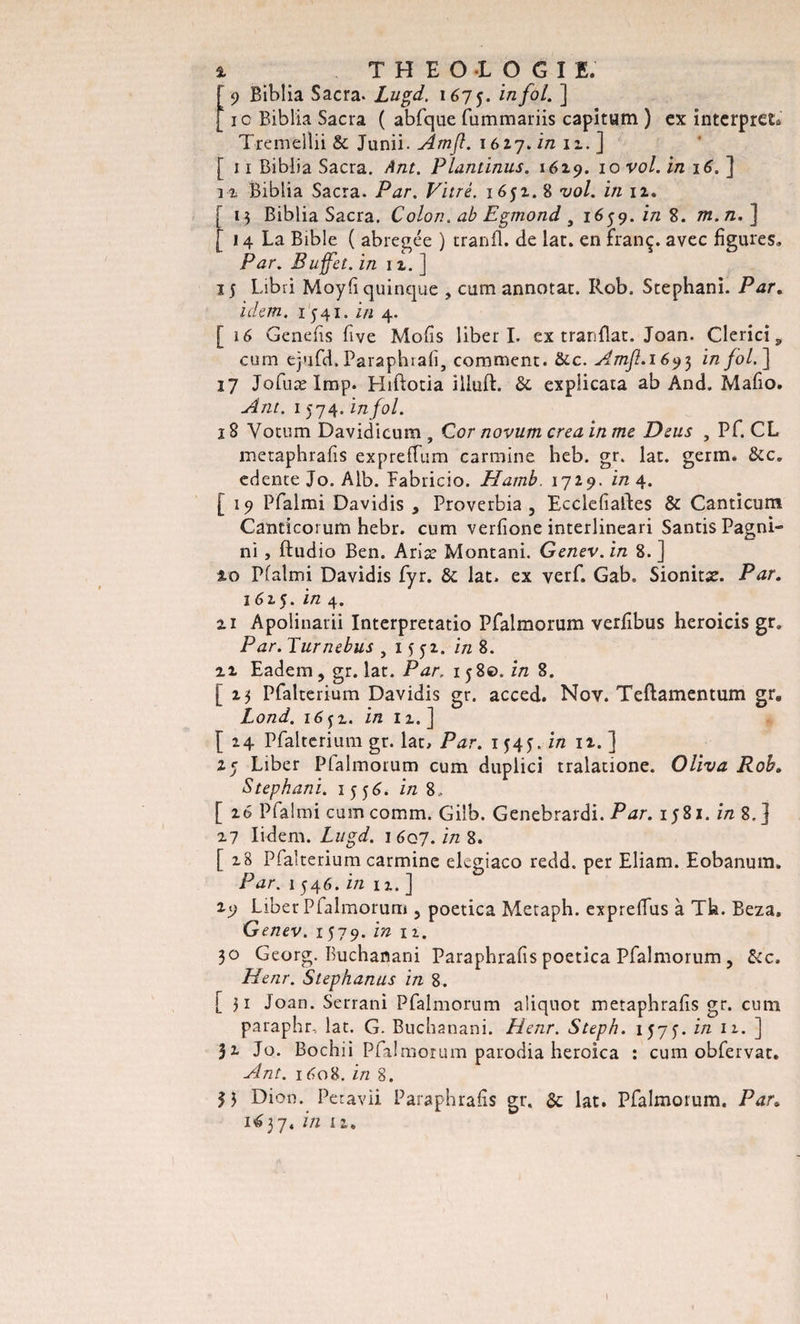 2 THEOLOGIE.
[ 9 Biblia Sacra. Lugd. 1675. in fol. ]
[ 10 Biblia Sacra ( abſque ſummariis capitum ) ex interpret.
Tremellii & Junii. Amſt. 1627. in 12. ]
[ 11 Biblia Sacra. Ant. Plantinus. 1629. 10 vol. in 16. ]
12 Biblia Sacra. Par. Vitré. 1652. 8 vol. in 12.
[ 13 Biblia Sacra. Colon. ab Egmond, 1659. in 8. m. n. ]
[ 14 La Bible ( abregée ) tranſl. de lat. en franç. avec figures.
Par. Buffet. in 12. ]
15 Libri Moyſi quinque, cum annotat. Rob. Stephani. Par.
idem. 1541. in 4.
[ 16 Geneſis ſive Moſis liber I. ex tranſlat. Joan. Clerici,
cum ejuſd. Paraphraſi, comment. &c. Amſt. 1693 in fol. ]
17 Joſuæ Imp. Hiſtotia illuſt. & explicata ab And. Maſio.
Ant. 1574. in fol.
18 Votum Davidicum, Cor novum crea in me Deus, Pſ. CL
metaphraſis expreſſum carmine heb. gr. lat. germ. &c.
edente Jo. Alb. Fabricio. Hamb. 1729. in 4.
[ 19 Pſalmi Davidis, Proverbia, Eccleſiaſtes & Canticum
Canticorum hebr. cum verſione interlineari Santis Pagni-
ni, ſtudio Ben. Ariæ Montani. Genev. in 8. ]
20 Pſalmi Davidis ſyr. & lat. ex verſ. Gab. Sionitæ. Par.
1625. in 4.
21 Apolinarii Interpretatio Pſalmorum verſibus heroicis gr.
Par. Turnebus, 1552. in 8.
22 Eadem, gr. lat. Par. 1580. in 8.
[ 23 Pſalterium Davidis gr. acced. Nov. Teſtamentum gr.
Lond. 1652. in 12. ]
[ 24 Pſalterium gr. lat. Par. 1545. in 12. ]
25 Liber Pſalmorum cum duplici tralatione. Oliva Rob.
Stephani. 1556. in 8.
[ 26 Pſalmi cum comm. Gilb. Genebrardi. Par. 1581. in 8. ]
27 Iidem. Lugd. 1607. in 8.
[ 28 Pſalterium carmine elegiaco redd. per Eliam. Eobanum.
Par. 1546. in 12. ]
29 Liber Pſalmorum, poetica Metaph. expreſſus à Th. Beza.
Genev. 1579. in 12.
30 Georg. Buchanani Paraphraſis poetica Pſalmorum, &c.
Henr. Stephanus in 8.
[ 31 Joan. Serrani Pſalmorum aliquot metaphraſis gr. cum
paraphr. lat. G. Buchanani. Henr. Steph. 1575. in 12. ]
32 Jo. Bochii Pſalmorum parodia heroica : cum obſervat.
Ant. 1608. in 8.
33 Dion. Petavii Paraphraſis gr. & lat. Pſalmorum. Par.
1637. in 12.